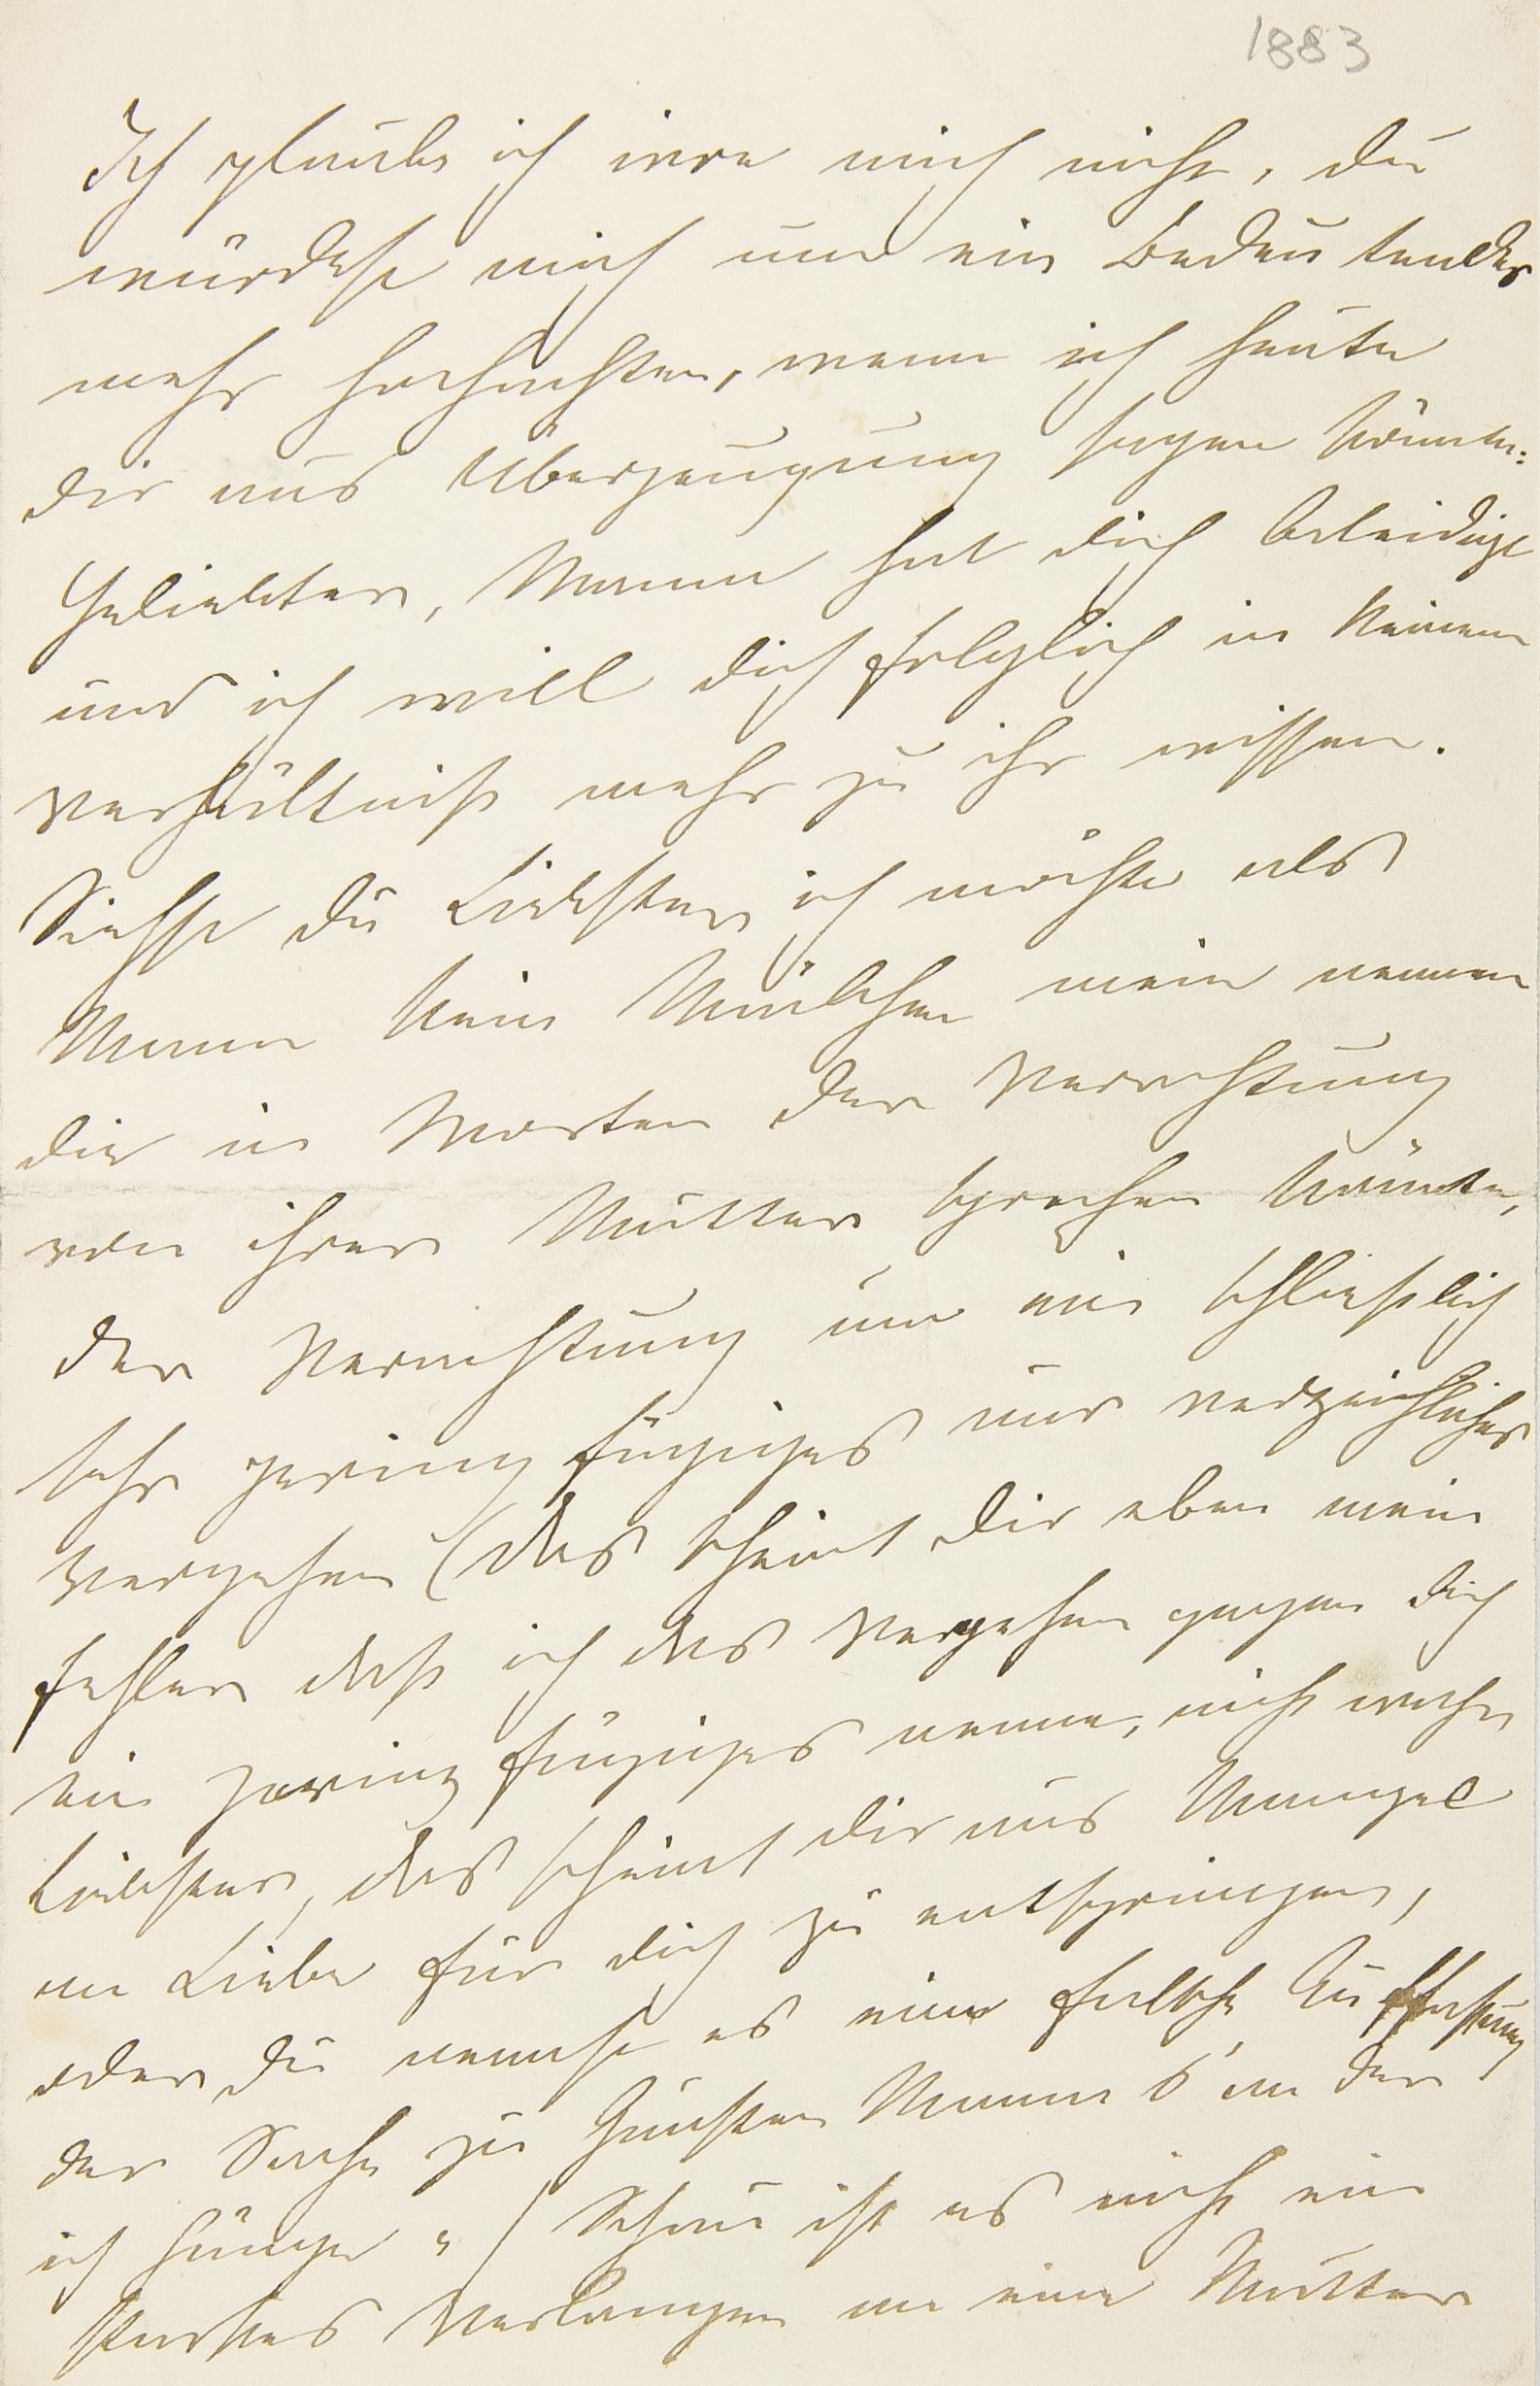 1883
Ich glaube ich irre mich nicht, du
würdest mich um ein Bedeutendes
mehr hochachten, wenn ich heute
dir aus Überzeugung sagen könnte:
Geliebter, Mama hat dich beleidigt
und ich will dich folglich in keinem
Verhältniß mehr zu ihr wissen.
Siehst du Liebster, ich möchte als
Mann kein Mädchen mein nennen
die in Worten der Verachtung
von ihrer Mutter sprechen könnte,
der Verachtung um ein schließlich
sehr geringfügiges und verzeihliches
Vergehen (das scheint dir eben mein
Fehler daß ich das Vergehen gegen dich
ein geringfügiges nenne, nicht wahr
Liebster, das scheint dir aus Mangel
an Liebe für dich zu entspringen,
oder du nennst es eine falsche Auffassung
der Sache zu Gunsten Mama's an der
ich hänge.) Schau ist es nicht ein
starkes Verlangen an eine Mutter